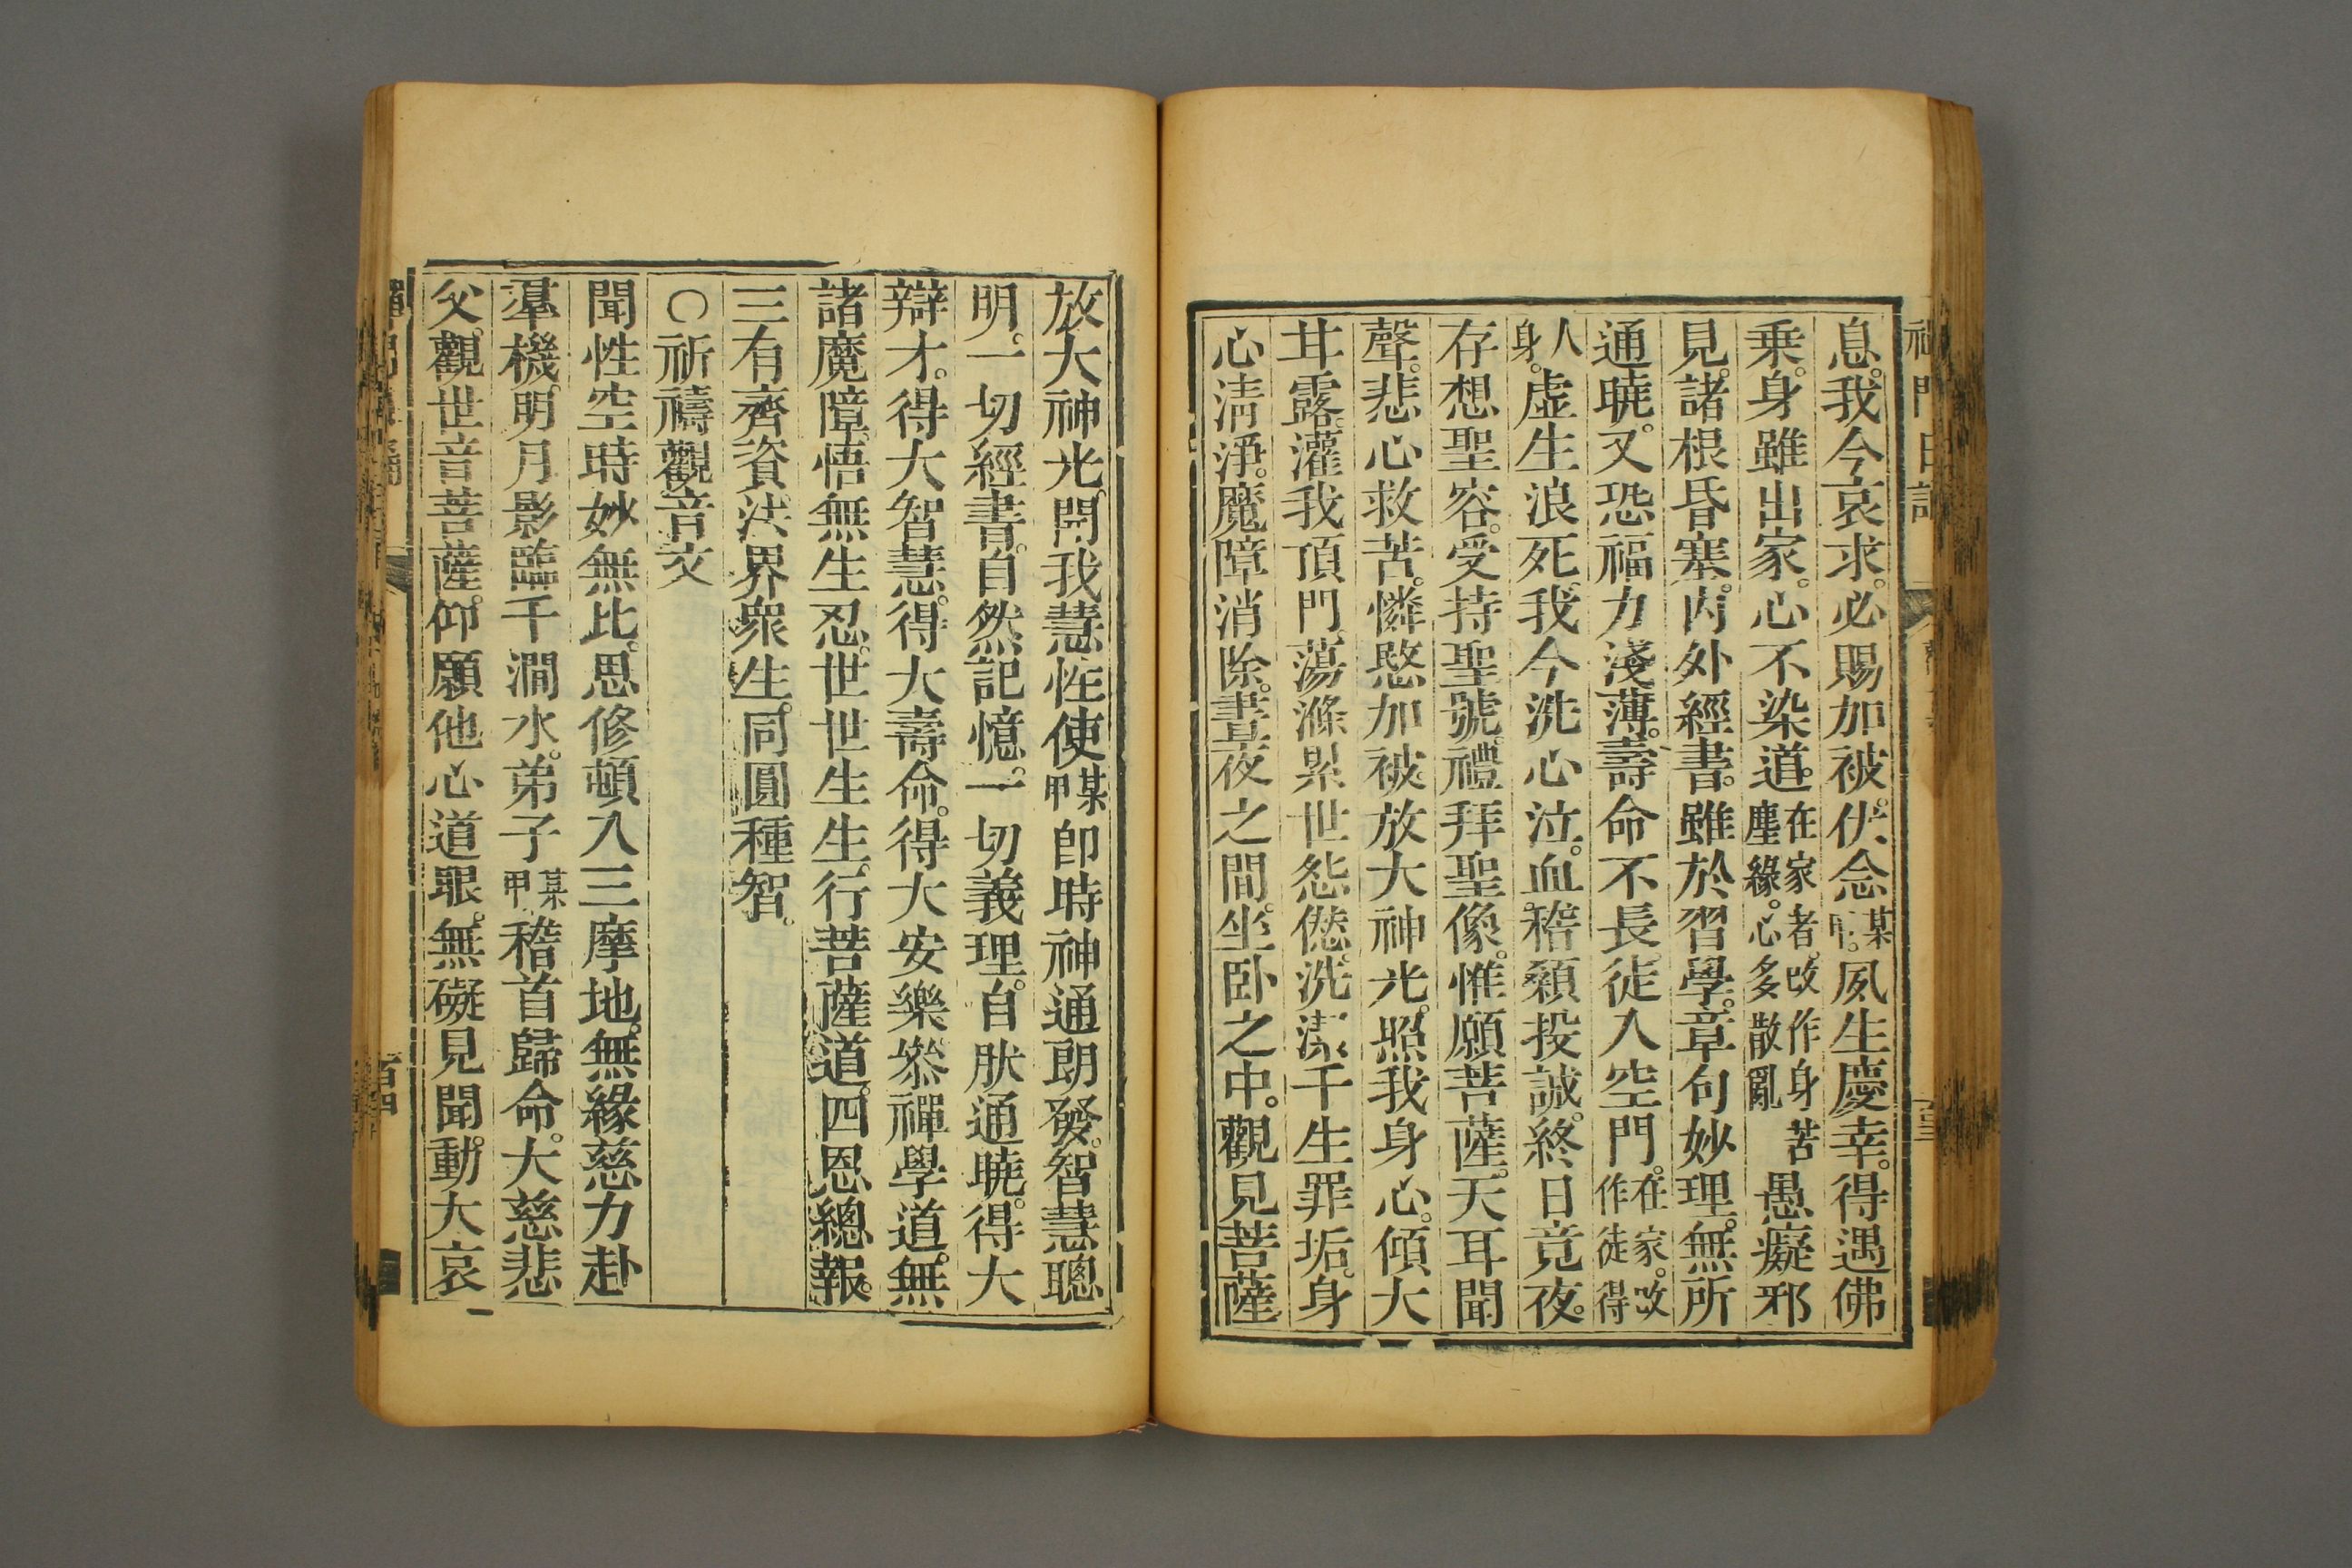 息。我今哀求。必賜加被。伏念某甲。夙生慶幸。得遇佛
乗。身雖出家。心不染道。在家者。改作身苦塵緣。心多散亂愚癡邪
見。諸根昏塞。內外經書。雖於習學。章句妙理。無所
通曉。又恐福力淺薄。壽命不長。徒入空門。在家。改作徒得
人身。虛生浪死。我今洗心泣血。稽顙投誠。終日竟夜。
存想聖容。受持聖號。禮拜聖像。惟願菩薩。天耳聞
聲。悲心救苦。憐愍加被。放大神光。照我身心。傾大
甘露。灌我頂門。蕩滌累世怨愆。洗潔千生罪垢。身
心淸淨。魔障消除。晝夜之間。坐卧之中。觀見菩薩
放大神光。開我慧性。使某甲卽時神通朗發。智慧聰
明。一切經書。自然記憶。一切義理。自肰通曉。得大
辯才。得大智慧。得大壽命。得大安樂。叅禪學道。無
諸魔障。悟無生忍。世世生生。行菩薩道。四恩總報。
三有齊資。法界衆生。同圓種智。
○祈禱觀音文
聞性空時妙無比。思修頓入三摩地。無緣慈力赴
羣機。明月影臨千澗水。弟子某甲稽首歸命。大慈悲
父。觀世音菩薩。仰願他心道眼。無礙見聞。動大哀